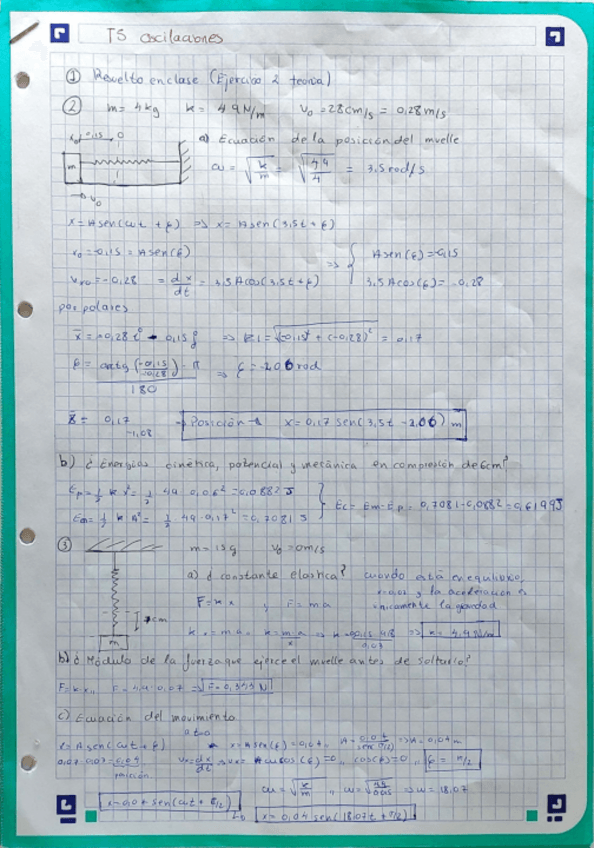 T5 oscilaciones
① Resuelto en clase (Ejercicio 2 teoria)
② m = 4 kg k = 49 N/m v₀ = 28 cm/s = 0,28 m/s
x₀ 0,15 0
a) Ecuación de la posición del muelle
m
ω = √(k/m) = √(49/4) = 3,5 rad/s
v₀
x = A sen(ωt + φ) ⇒ x = A sen(3,5t + φ)
x₀ = -0,15 = A sen(φ)
⇒ { A sen(φ) = -0,15
vx₀ = -0,28 = dx/dt = 3,5 A cos(3,5t + φ)
3,5 A cos(φ) = -0,28
por polares
= 0,17
φ = arctg(-0,15/-0,28) - π / 180 ⇒ φ = -2.06 rad
0,17 -1,08 → Posición x = 0,17 sen(3,5t - 2.06) m
b) ¿Energías cinética, potencial y mecánica en compresión de 6cm?
Ep = 1/2 k x² = 1/2 49 · 0,06² = 0,0882 J
Em = 1/2 k A² = 1/2 49 · 0,17² = 0,7081 J
} Ec = Em - Ep = 0,7081 - 0,0882 = 0,6199 J
③ m = 15 g v₀ = 0 m/s
a) ¿constante elastica? cuando está en equilibrio,
y la aceleración es
únicamente la gravedad
F = k x , F = m a
cm
m
k x = m a k = m a / x ⇒ k = 0,015 9,8 / 0,03 ⇒ k = 4,9 N/m
b) ¿Módulo de la fuerza que ejerce el muelle antes de soltarlo?
F = k · x F = 4,9 · 0,07 ⇒ F = 0,343 N
c) Ecuación del movimiento
t=0
x = A sen(ωt + φ)
x = A sen(φ) = 0,04 A = 0,04 / sen(π/2) ⇒ A = 0,04 m
0,07 - 0,03 = 0,04
posición
vx = dx/dt ⇒ vx = Aω cos(φ) = 0 cos(φ) = 0 φ = π/2
ω = √(k/m) ω = √(4,9/0,015) ⇒ ω = 18,07
x = 0,04 sen(ωt + π/2)
x = 0,04 sen(18,07t + π/2)